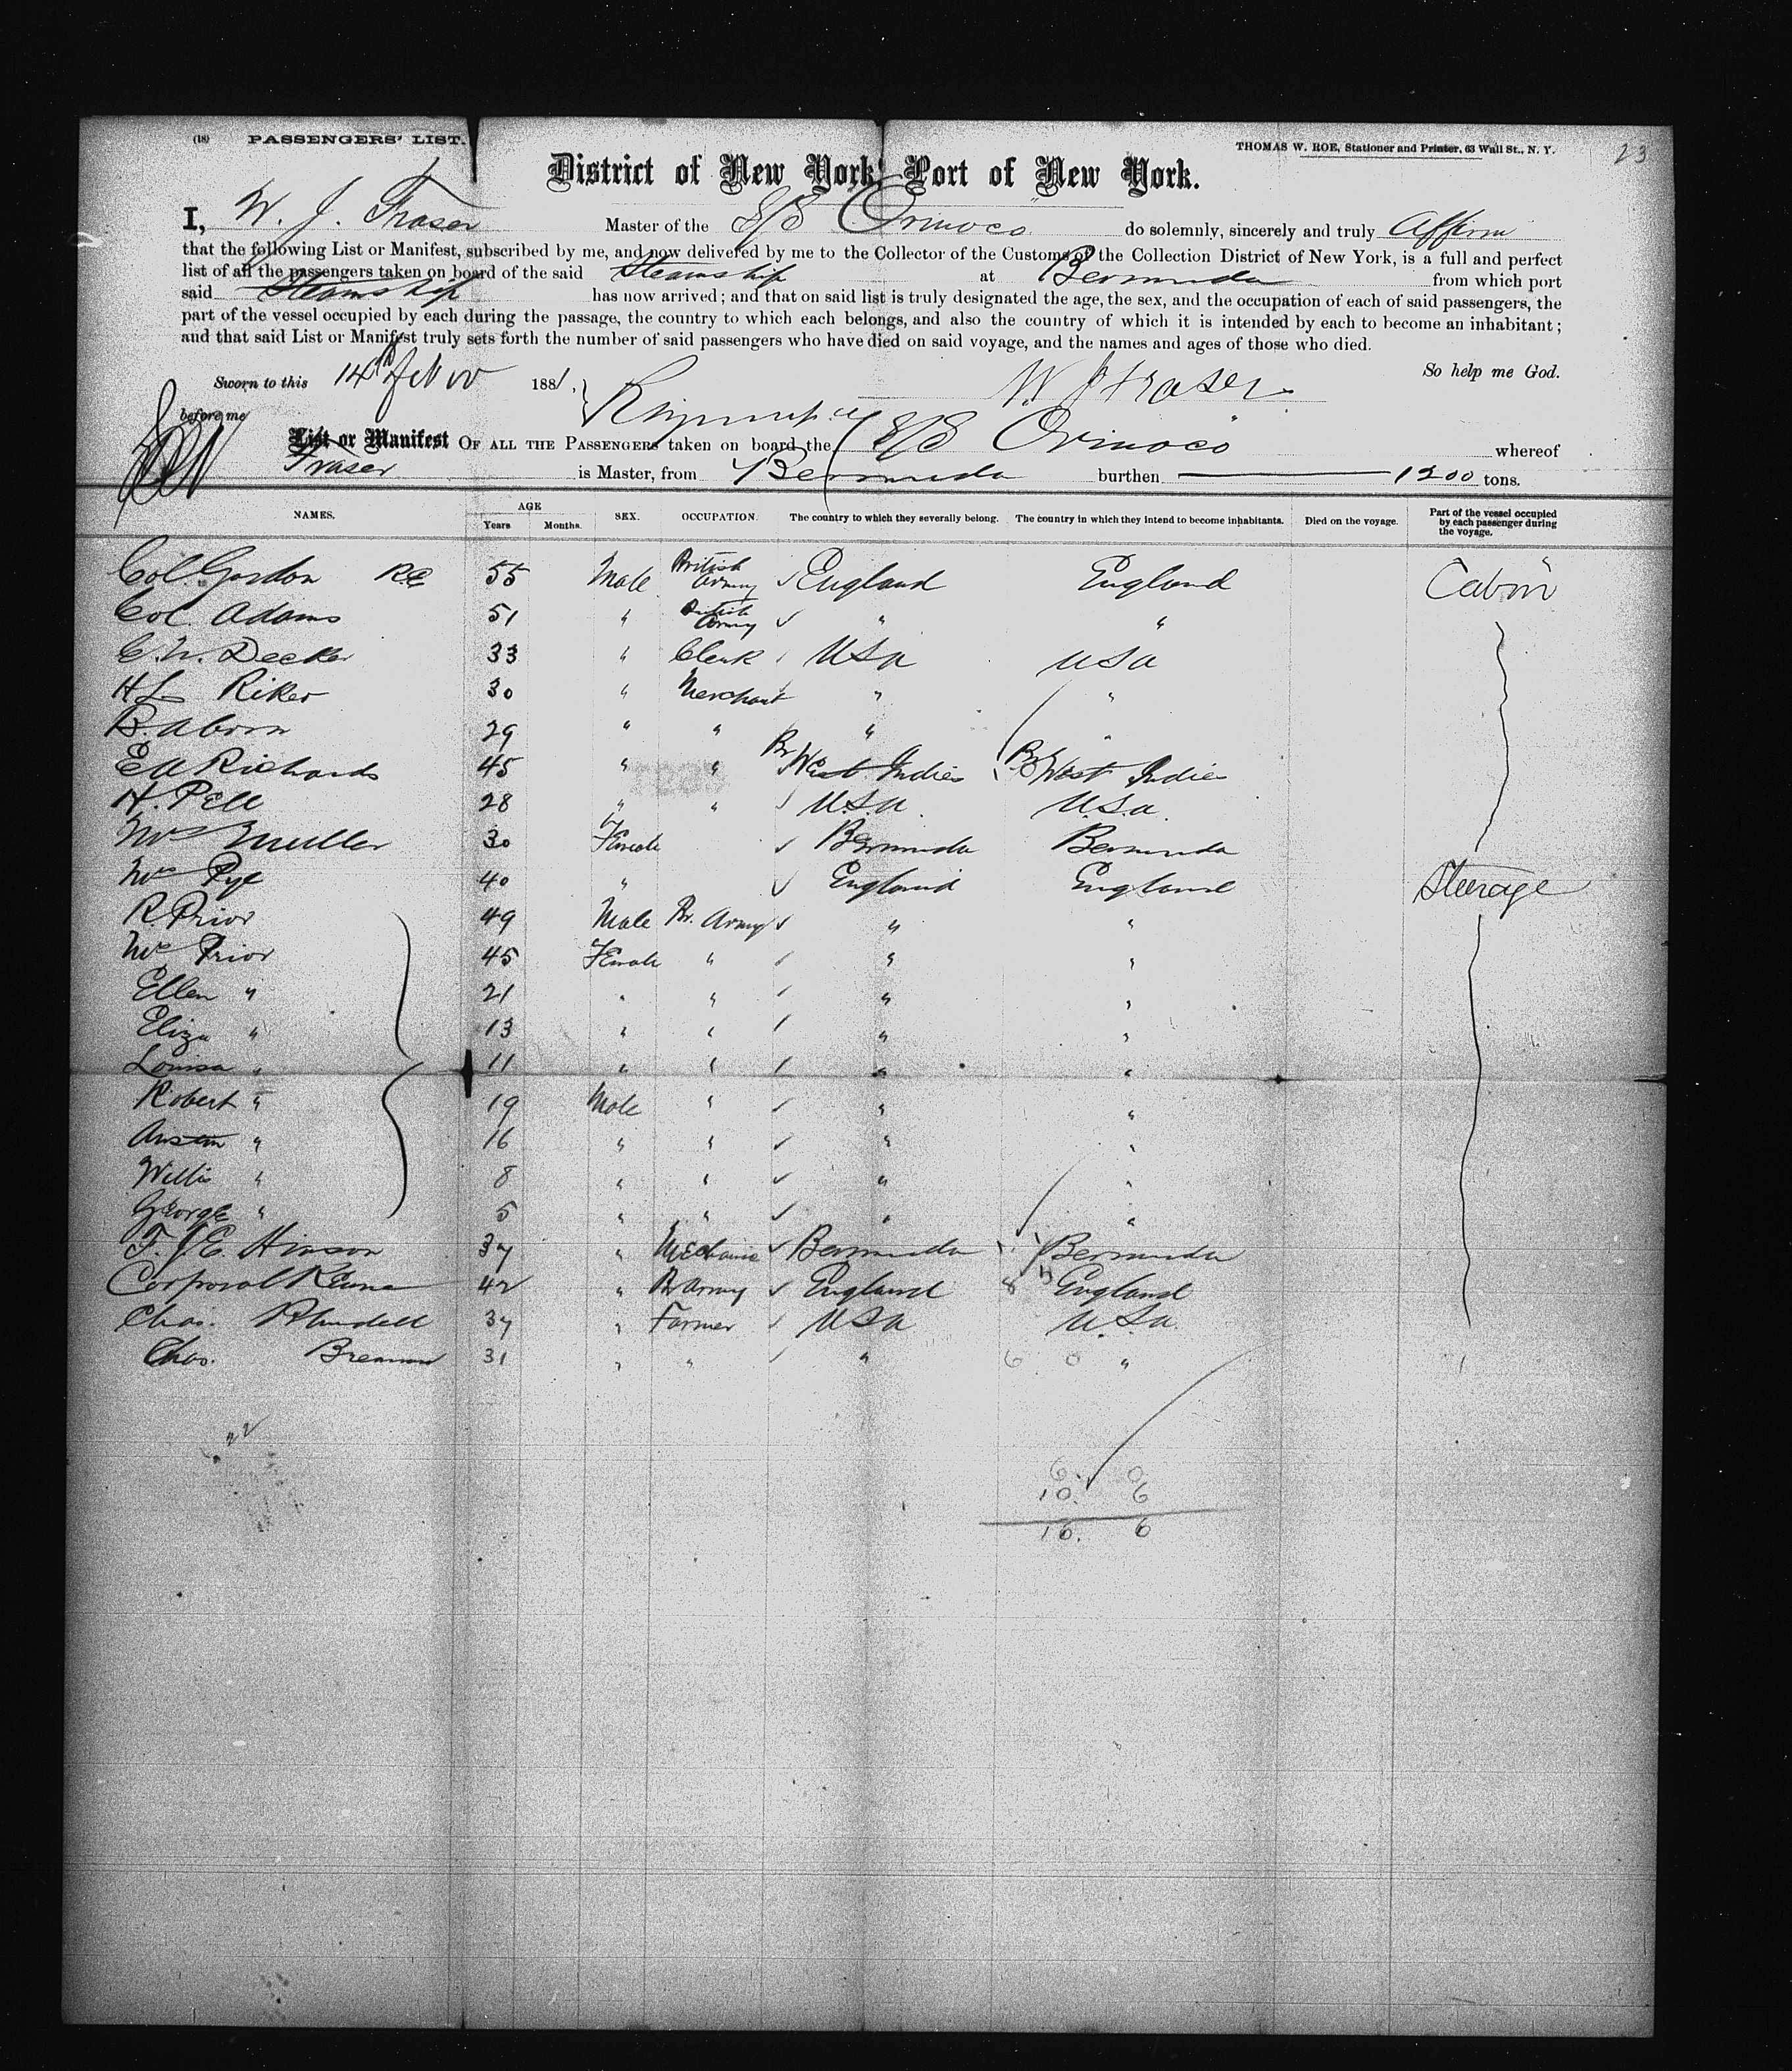 (18) PASSENGERS' LIST.
THOMAS W. ROE, Stationer and Printer, 63 Wall St., N. Y.
23
District of New York, Port of New York.
I, W. J. Fraser Master of the S/S Orinoco do solemnly, sincerely and truly Affirm
that the following List or Manifest, subscribed by me, and now delivered by me to the Collector of the Customs of the Collection District of New York, is a full and perfect
list of all the passengers taken on board of the said Steamship at Bermuda from which port
said Steamship has now arrived; and that on said list is truly designated the age, the sex, and the occupation of each of said passengers, the
part of the vessel occupied by each during the passage, the country to which each belongs, and also the country of which it is intended by each to become an inhabitant;
and that said List or Manifest truly sets forth the number of said passengers who have died on said voyage, and the names and ages of those who died.
So help me God.
Sworn to this 14th of Nov 1881,
W J Fraser
before me
List or Manifest OF ALL THE PASSENGERS taken on board the S/S Orinoco whereof
Fraser is Master, from Bermuda burthen 1200 tons.
NAMES. AGE Years Months. SEX. OCCUPATION. The country to which they severally belong. The country in which they intend to become inhabitants. Died on the voyage. Part of the vessel occupied by each passenger during the voyage.
Col. Gordon RE 55 Male British Army England England Cabin
Col Adams 51 " British Army " "
C. W. Decker 33 " Clerk USA USA
H L Riker 30 " Merchant " "
B. Aborn 29 " " " "
E A Richards 45 " " Br West Indies Br West Indies
H. Pell 28 " " U.S.A. U.S.A.
Mrs Muller 30 Female Bermuda Bermuda
Mrs Pye 40 " England England Steerage
R. Prior 49 Male Br. Army " "
Mrs Prior 45 Female " " "
Ellen " 21 " " " "
Eliza " 13 " " " "
Louisa " 11 " " " "
Robert " 19 Male " " "
Austin " 16 " " " "
Willis " 8 " " " "
George " 5 " " " "
F. J. E. Hinson 37 " Mechanic Bermuda Bermuda
Corporal 42 " Br Army England England
Chas. Blundell 37 " Farmer USA U.S.A.
Chas. 31 " " " 6 0 "
22
6. 0
10. 6
16. 6